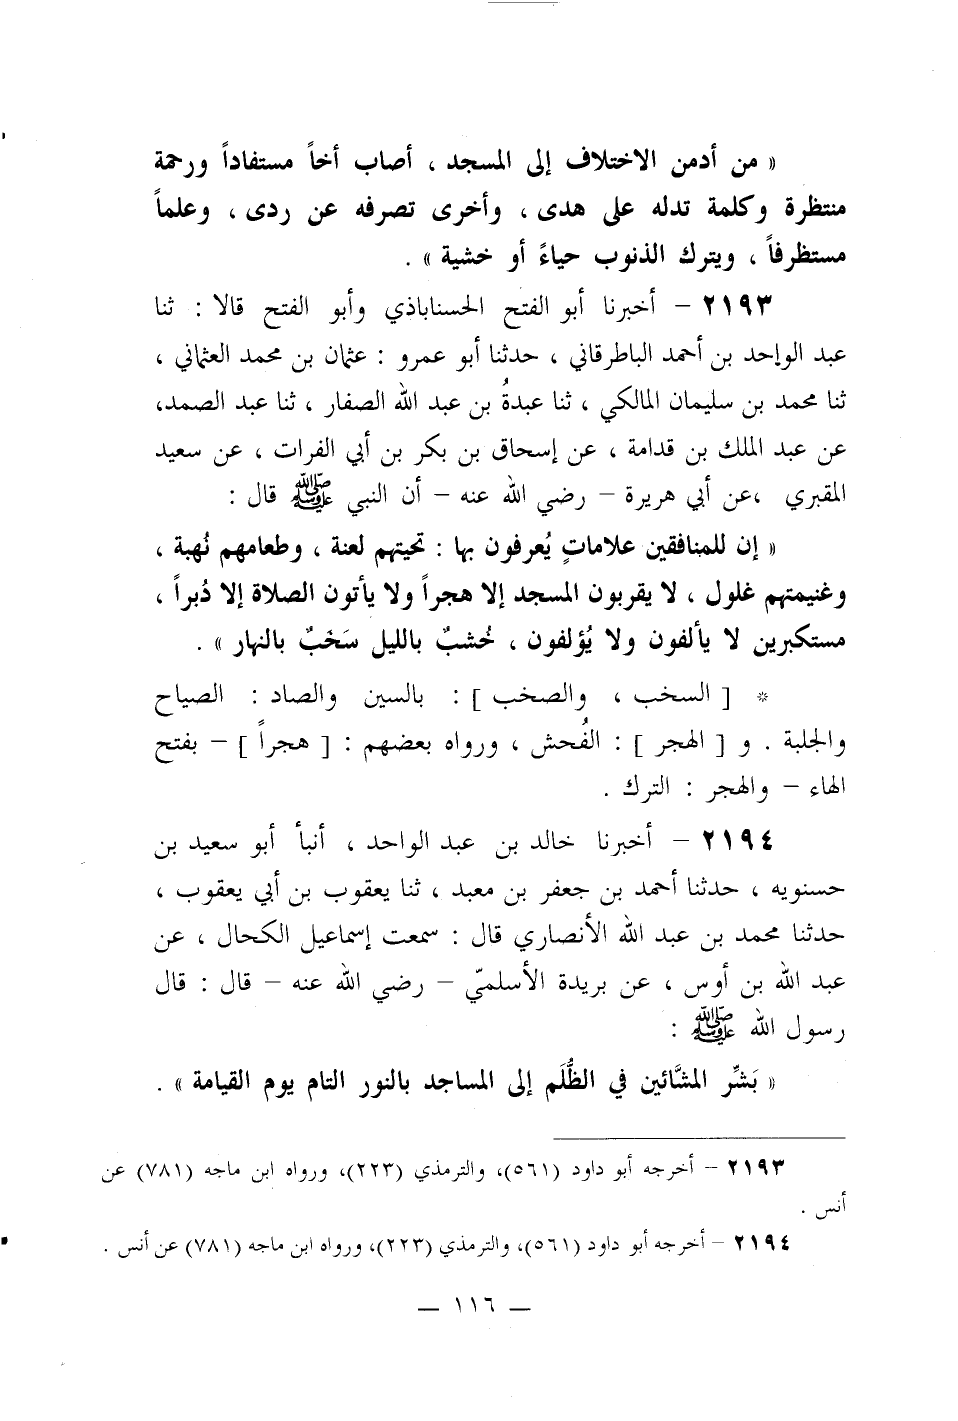 « من أدمن الاختلاف إلى المسجد ، أصاب أخاً مستفاداً ورحمة
منتظرة وكلمة تدله على هدى ، وأخرى تصرفه عن ردى ، وعلماً
مستظرفاً ، ويترك الذنوب حياءً أو خشية » .
٢١٩٣ – أخبرنا أبو الفتح الحسناباذي وأبو الفتح قالا : ثنا
عبد الواحد بن أحمد الباطرقاني ، حدثنا أبو عمرو : عثمان بن محمد العثماني ،
ثنا محمد بن سليمان المالكي ، ثنا عبدةُ بن عبد الله الصفار ، ثنا عبد الصمد،
عن عبد الملك بن قدامة ، عن إسحاق بن بكر بن أبي الفرات ، عن سعيد
المقبري ،عن أبي هريرة – رضي الله عنه – أن النبي ﷺ قال :
« إن للمنافقين علاماتٍ يُعرفون بها : تحيتهم لعنة ، وطعامهم نُهبة ،
وغنيمتهم غلول ، لا يقربون المسجد إلا هجراً ولا يأتون الصلاة إلا دُبراً ،
مستكبرين لا يألفون ولا يُؤلفون ، خُشبٌ بالليل سَخَبٌ بالنهار » .
* [ السخب ، والصخب ] : بالسين والصاد : الصياح
والجلبة . و [ الهجر ] : الفُحش ، ورواه بعضهم : [ هجراً ] – بفتح
الهاء – والهجر : الترك .
٢١٩٤ – أخبرنا خالد بن عبد الواحد ، أنبأ أبو سعيد بن
حسنويه ، حدثنا أحمد بن جعفر بن معبد ، ثنا يعقوب بن أبي يعقوب ،
حدثنا محمد بن عبد الله الأنصاري قال : سمعت إسماعيل الكحال ، عن
عبد الله بن أوس ، عن بريدة الأسلميّ – رضي الله عنه – قال : قال
رسول الله ﷺ :
« بَشِّر المشَّائين في الظُّلَم إلى المساجد بالنور التام يوم القيامة » .
٢١٩٣ – أخرجه أبو داود (٥٦١)، والترمذي (٢٢٣)، ورواه ابن ماجه (٧٨١) عن
أنس .
٢١٩٤ – أخرجه أبو داود (٥٦١)، والترمذي (٢٢٣)، ورواه ابن ماجه (٧٨١) عن أنس .
— ١١٦ —